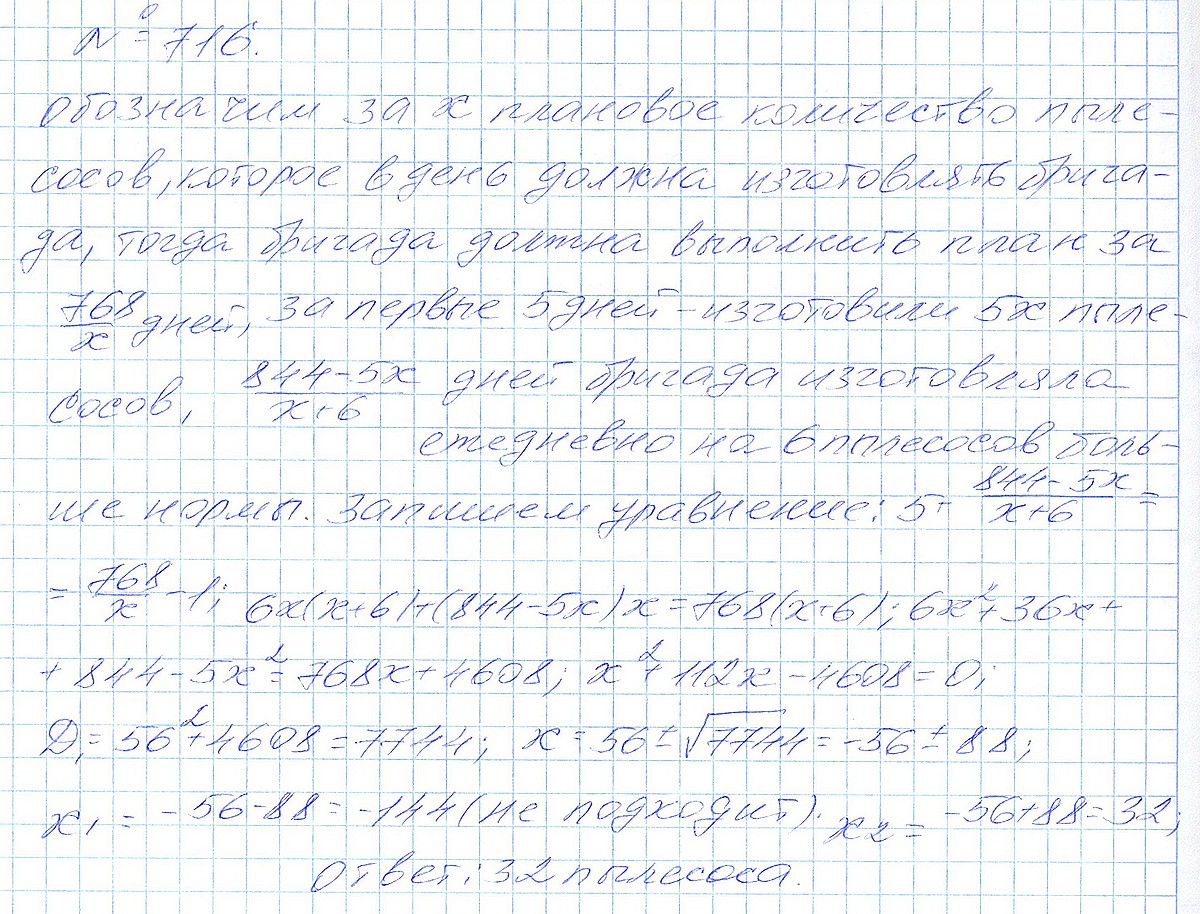 № 716.
Обозначим за x плановое количество пыле-
сосов, которое в день должна изготовлять брига-
да, тогда бригада должна выполнить план за
768/x дней, за первые 5 дней - изготовили 5x пыле-
сосов, (844-5x)/(x+6) дней бригада изготовляла
ежедневно на 6 пылесосов боль-
ше нормы. Запишем уравнение: 5+ (844-5x)/(x+6) =
= 768/x -1; 6x(x+6)+(844-5x)x=768(x+6); 6x²+36x+
+ 844-5x²=768x+4608; x²+112x-4608=0;
D₁=56²+4608=7744; x=56±√7744=-56±88;
x₁=-56-88=-144 (не подходит). x₂=-56+88=32;
Ответ: 32 пылесоса.